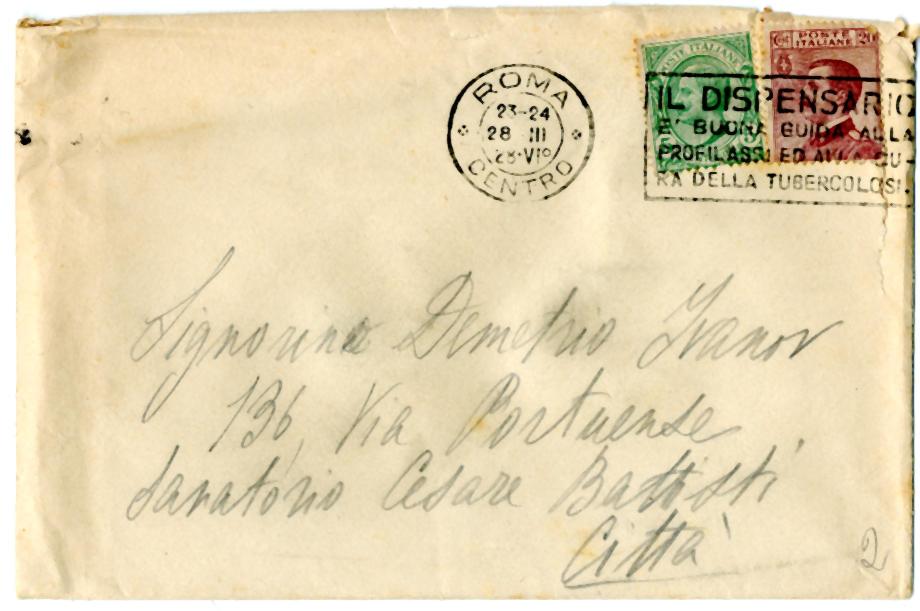 ROMA
23-24
28 III
28·VIº
CENTRO
POSTE ITALIANE
POSTE
ITALIANE 20
IL DISPENSARIO
E' BUONA GUIDA ALLA
PROFILASSI ED ALLA CU-
RA DELLA TUBERCOLOSI.
Signorina Demetrio Ivanov
136, Via Portuense
Sanatorio Cesare Battisti
Città
2